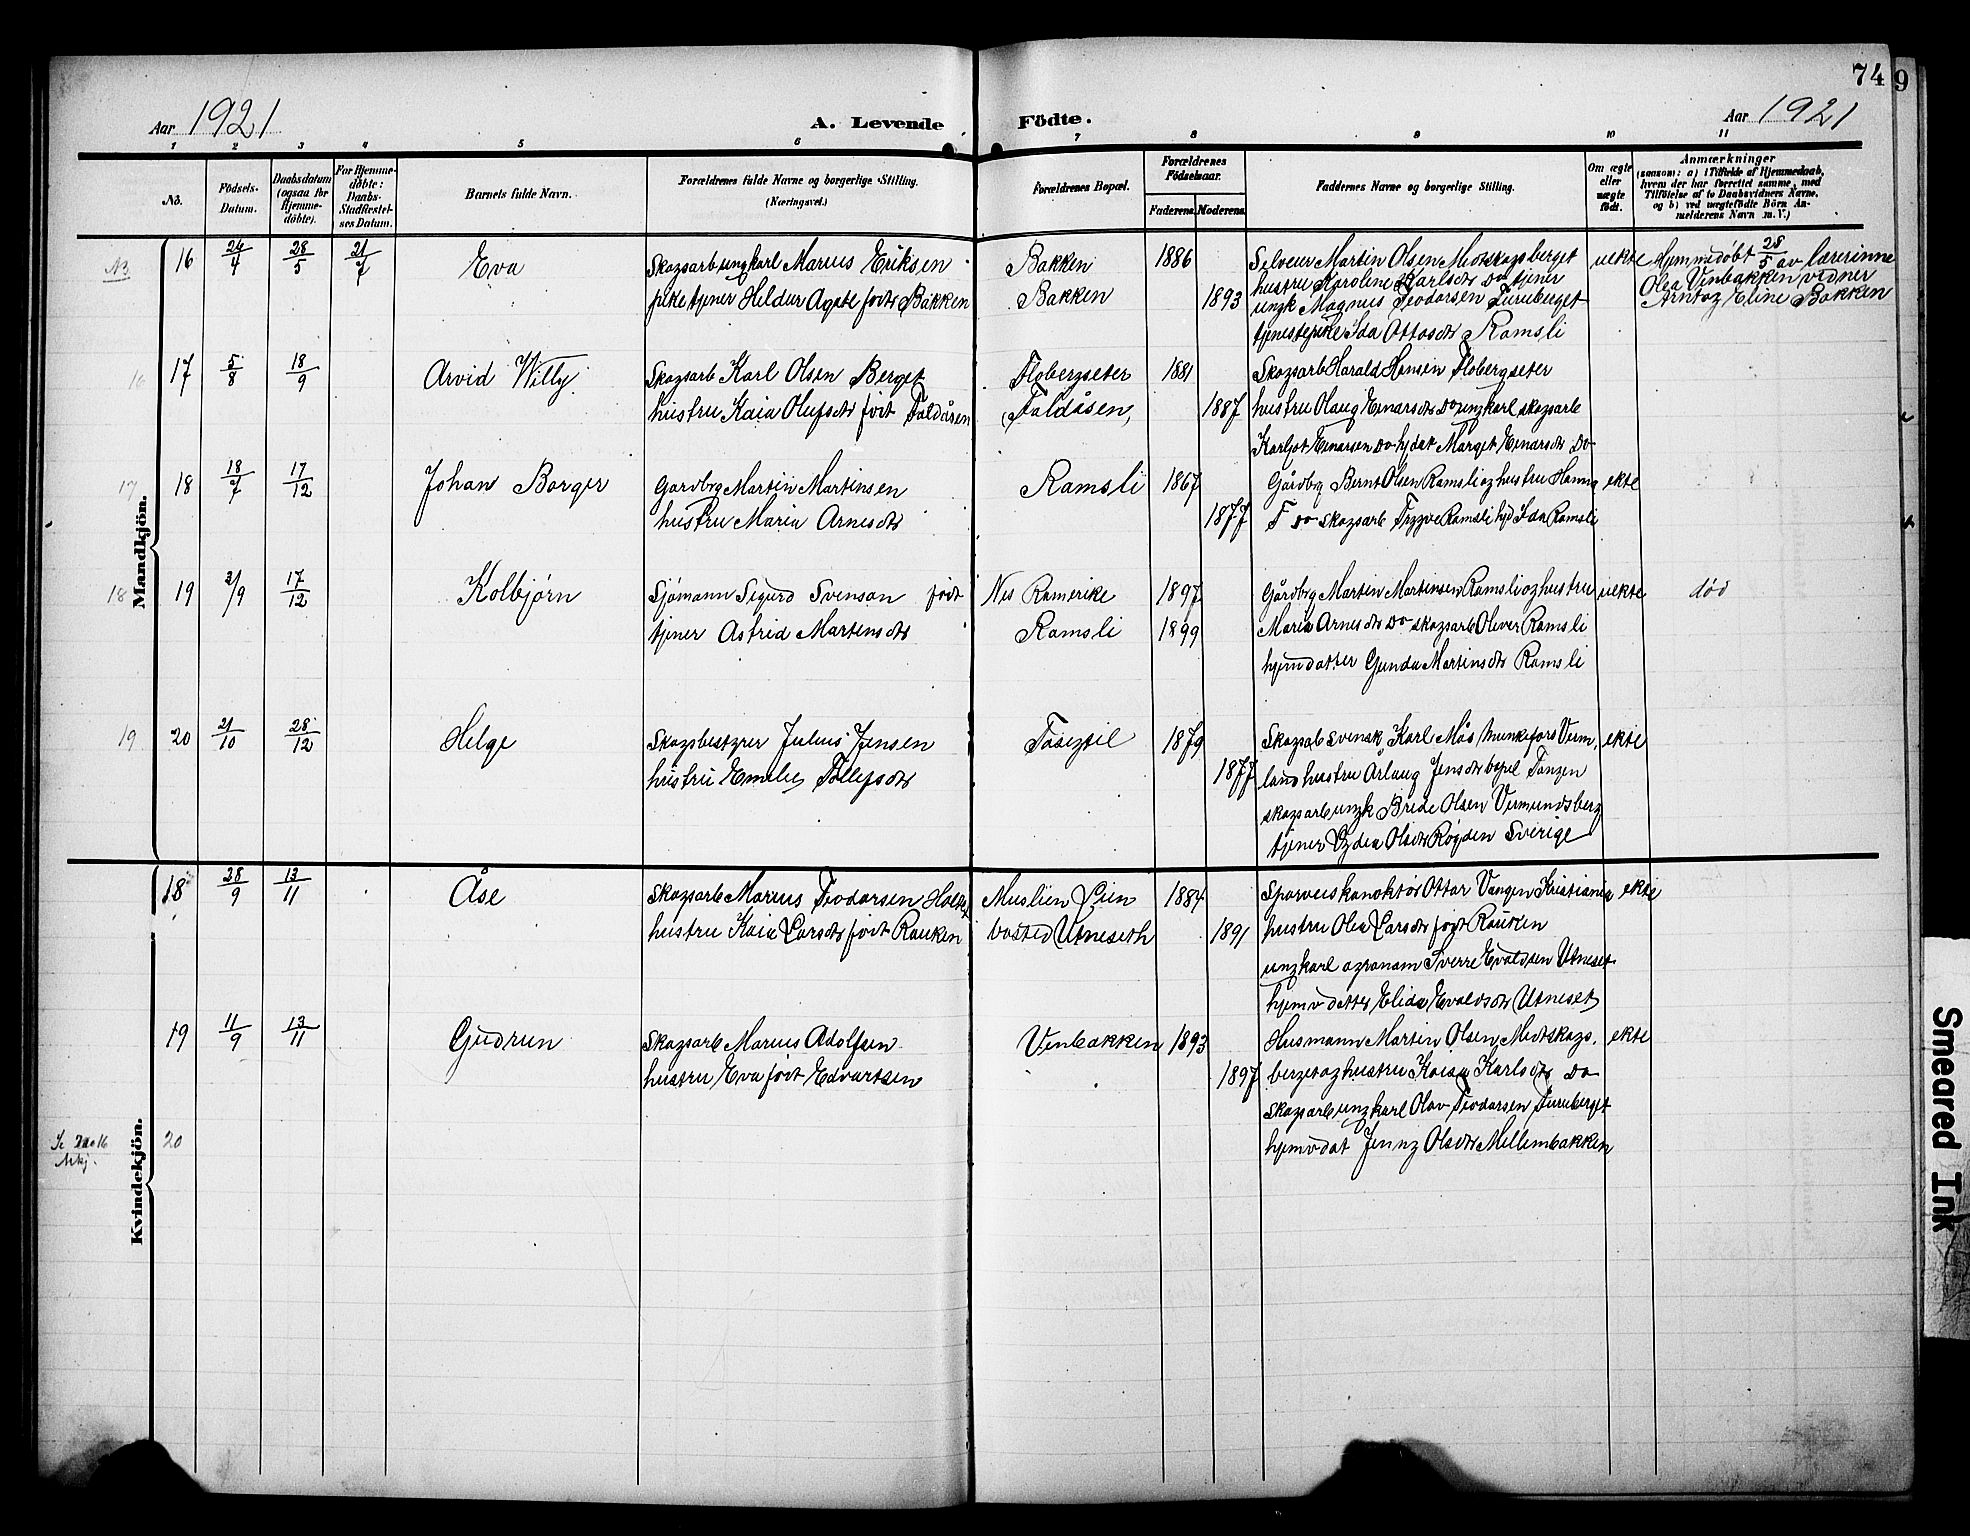 74 9
Aar 1921
A. Levende
Födte.
Aar 1921
1 2 3 4 5 6 7 8 9 10 11
No.
Födsels-
Datum.
Daabsdatum
(ogsaa for
Hjemme-
döbte).
For Hjemme-
döbte:
Daabs-
Stadfæstel-
ses Datum.
Barnets fulde Navn.
Forældrenes fulde Navne og borgerlige Stilling.
(Næringsvei.)
Forældrenes Bopæl.
Forældrenes
Födselsaar.
Faderens. Moderens.
Faddernes Navne og borgerlige Stilling.
Om ægte
eller
uægte
födt.
Anmærkninger
(saasom: a) i Tilfælde af Hjemmedaab,
hvem der har forrettet samme, med
Tilföielse af to Daabsvidners Navne,
og b) ved uægtefödte Börn An-
melderens Navn m. V.)
Mandkjön.
NB 16 24/4 28/5 21/7 Eva
Skogsarb ungkarl Marius Eriksen
pike tjener Heldur Agate født Bakken
Bakken 1886
Bakken 1893
Selveier Martin Olsen Midtskogsberget
hustru Karoline Karlsdtr Do tjener
ungk Magnus Teodorsen Furuberget
tjenestepike Ida Ottosdtr Ramsli
uekte
Hjemmedøbt 28/5 av lærerinne
Olea Vinbakken vidner
Arnt og Eline Bakken
16 17 5/8 18/9 Arvid Willy
Skogsarb Karl Olsen Berget
hustru Kaia Olufsdtr født Faldåsen
Flobergseter 1881
Faldåsen, 1887
Skogsarb Harald Hansen Flobergseter
hustru Olaug Einarsdtr Do ungkarl skogsarb
Karljot Einarsen Do hj dat Marget Einarsdtr Do
17 18 18/7 17/12 Johan Borger
Gardbrg Martin Martinsen
hustru Maria Arnesdtr
Ramsli 1867
1877
Gårdbrg Bernt Olsen Ramsli og hustru Hanna
F Do skogsarb Trygve Ramsli hjd Ida Ramsli
ekte
18 19 2/9 17/12 Kolbjørn
Sjømann Sigurd Svenson født
tjener Astrid Martinsdtr
Nes Romerike 1897
Ramsli 1899
Gårdbrg Martin Martinsen Ramsli og hustru
Maria Arnesdtr Do skogsarb Oliver Ramsli
hjemdatter Gunda Martinsdtr Ramsli
uekte
død
19 20 21/10 28/12 Helge
Skogsbestyrer Julius Jensen
hustru Emelie Tollefsdtr
1879
1877
Skogsab svensk Karl Mås Munkefors Verm.
land hustru Arlaug Jensdtr bopel Tangen
skogsarb ungk Brede Olsen Vermundsberg
tjener Lydia Olsdtr Røgden Sverige
ekte
Kvindekjön.
18 28/9 13/11 Åse
Skogsarb Marius Teodorsen
hustru Kaia Larsdtr født Rauken
Muslien Lien 1884
bosted Utneseth 1891
Sporveiskonoktør Ottar Vangen Kristiania
hustru Olea Larsdtr født Rauken
ungkarl agronom Sverre Evaldsen Utneset
hjemv datter Elida Evaldsdtr Utneset
ekte
19 11/9 13/11 Gudrun
Skogsarb Marius Adolfsen
hustru Eva født Edvartsen
Vinbakken 1893
1897
Husmann Martin Olsen Midtskogs.
berget og hustru Kaisa Karlsdtr Do
skogsarb ungkarl Olav Teodorsen Furuberget
hjemv dat Jenny Olsdtr Mellembakken
ekte
Se No 16
Mkj.
20
Smeared Ink